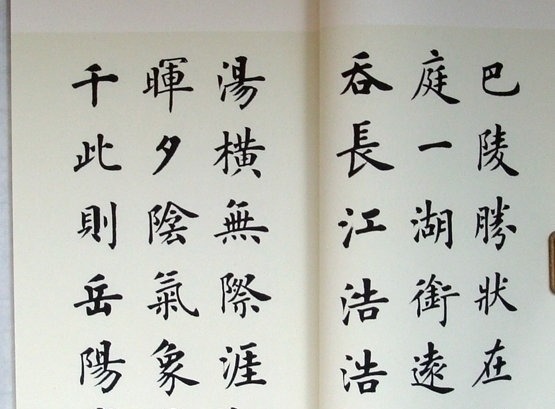 巴陵勝狀在
庭一湖銜遠
吞長江浩浩
湯橫無際涯
暉夕陰氣象
千此則岳陽